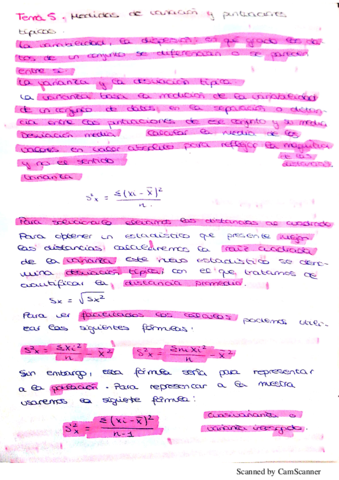 Tema 5, Medidas de variación y puntuaciones
típicas.
La variabilidad, la dispersión es el grado los da-
tos de un conjunto se diferencian o se parecen
entre sí.
La varianza y la desviación típica
La varianza basa la medición de la variabilidad
de un conjunto de datos, en la separación o distan-
cia entre las puntuaciones de ese conjunto y su media
Desviación media: calcular la media de los
valores en valor absoluto para reflejar la magnitud
y no el sentido de las
distancias
Varianza
S²x = Σ(xi - x̄)² / n
Para solucionarlo elevamos las distancias al cuadrado
Para obtener un estadístico que presente
las distancias calcularemos la raíz cuadrada
de la varianza este nuevo estadístico se deno-
mina desviación típica con el que tratamos de
cuantificar la distancia promedio.
Sx = √Sx²
Para ver facilitados los cálculos podemos utili-
zar las siguientes fórmulas:
S²x = Σxi² / n - x̄² S²x = Σnixi² / n - x̄²
Sin embargo, esta fórmula sería para representar
a la población. Para representar a la muestra
usaremos la siguiente fórmula:
S²x = Σ(xi - x̄)² / n-1 cuasivarianza o
varianza insesgada.
Scanned by CamScanner